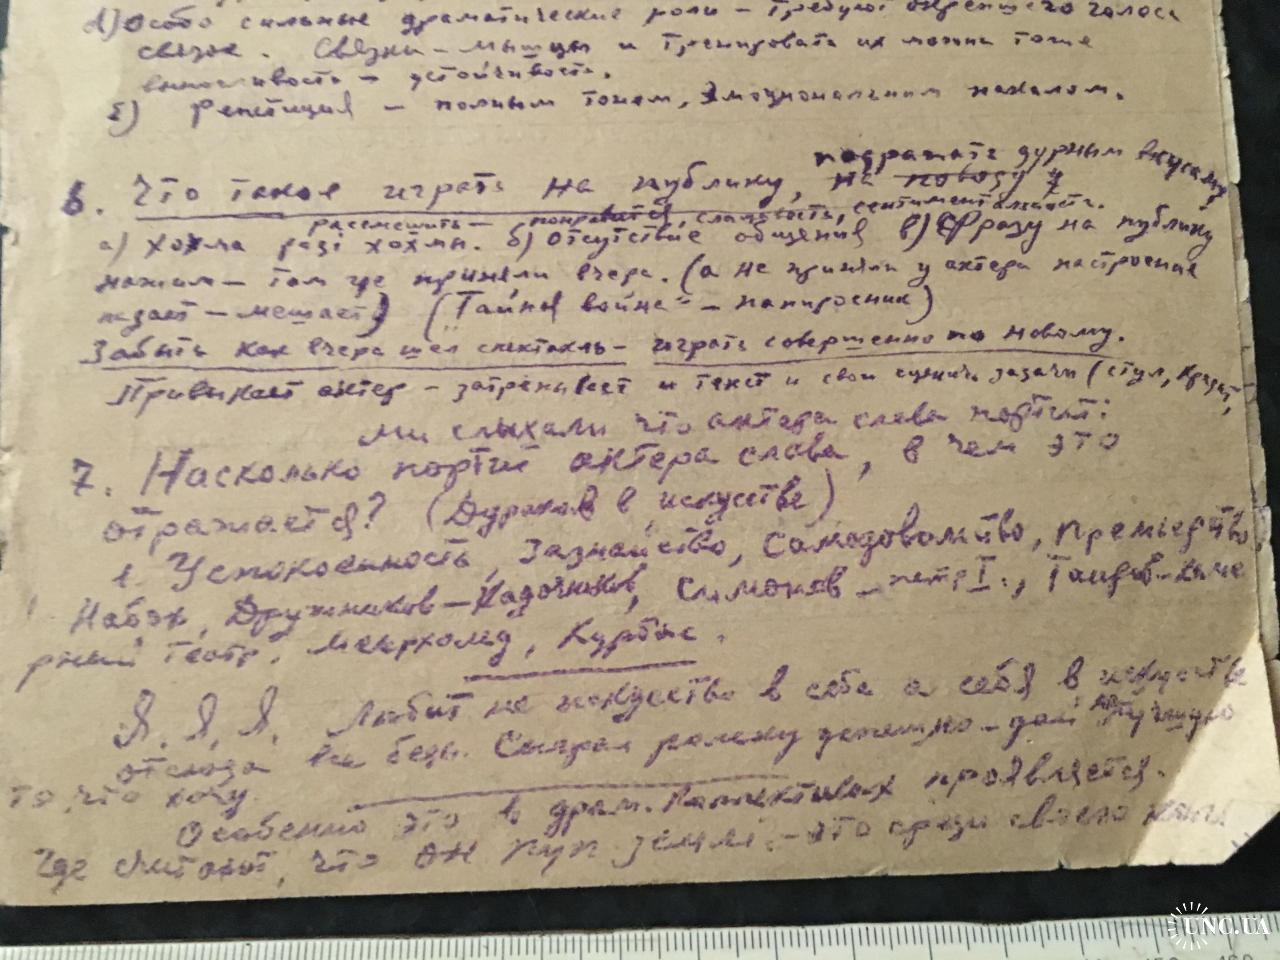 а) Особо сильные драматические роли – требуют окрепшего голоса
связок. Связки – мышцы и тренировать их можно тоже
выносливость – устойчивость.
б) Репетиция – полным тоном, эмоциональным накалом.
подражать дурным вкусам
6. Что такое играть на публику, на поводу у
рассмешить – понравиться, слащавость, сентиментальность.
а) хохма ради хохмы. б) отсутствие общения в) Фразу на публику
нажим – там где приняли вчера. (а не приняли у актера настроение
падает – мешает) ("Тайная война" – папиросник)
Забыть как вчера шел спектакль – играть совершенно по новому.
Привыкает актер – затрепывает и текст и свои сценич. задачи (стул,
Мы слыхали что актера слава портит:
7. Насколько портит актера слава, в чем это
отражается? (Дураков в искусстве)
1. Успокоенность, Зазнайство, Самодовольство, Премьерство,
Набэк, Дружников – Кадочников, Симонов – петр I., Таиров – каме
рный театр. Меерхольд, Курбас.
Я, Я, Я. Любит не искусство в себе а себя в искусстве
отсюда все беды. Сыграл рольку успешно – дай лучшую
то, что хочу.
Особенно это в драм. коллективах проявляется.
Где считают, что он пуп земли – это среди своего
UNC.UA